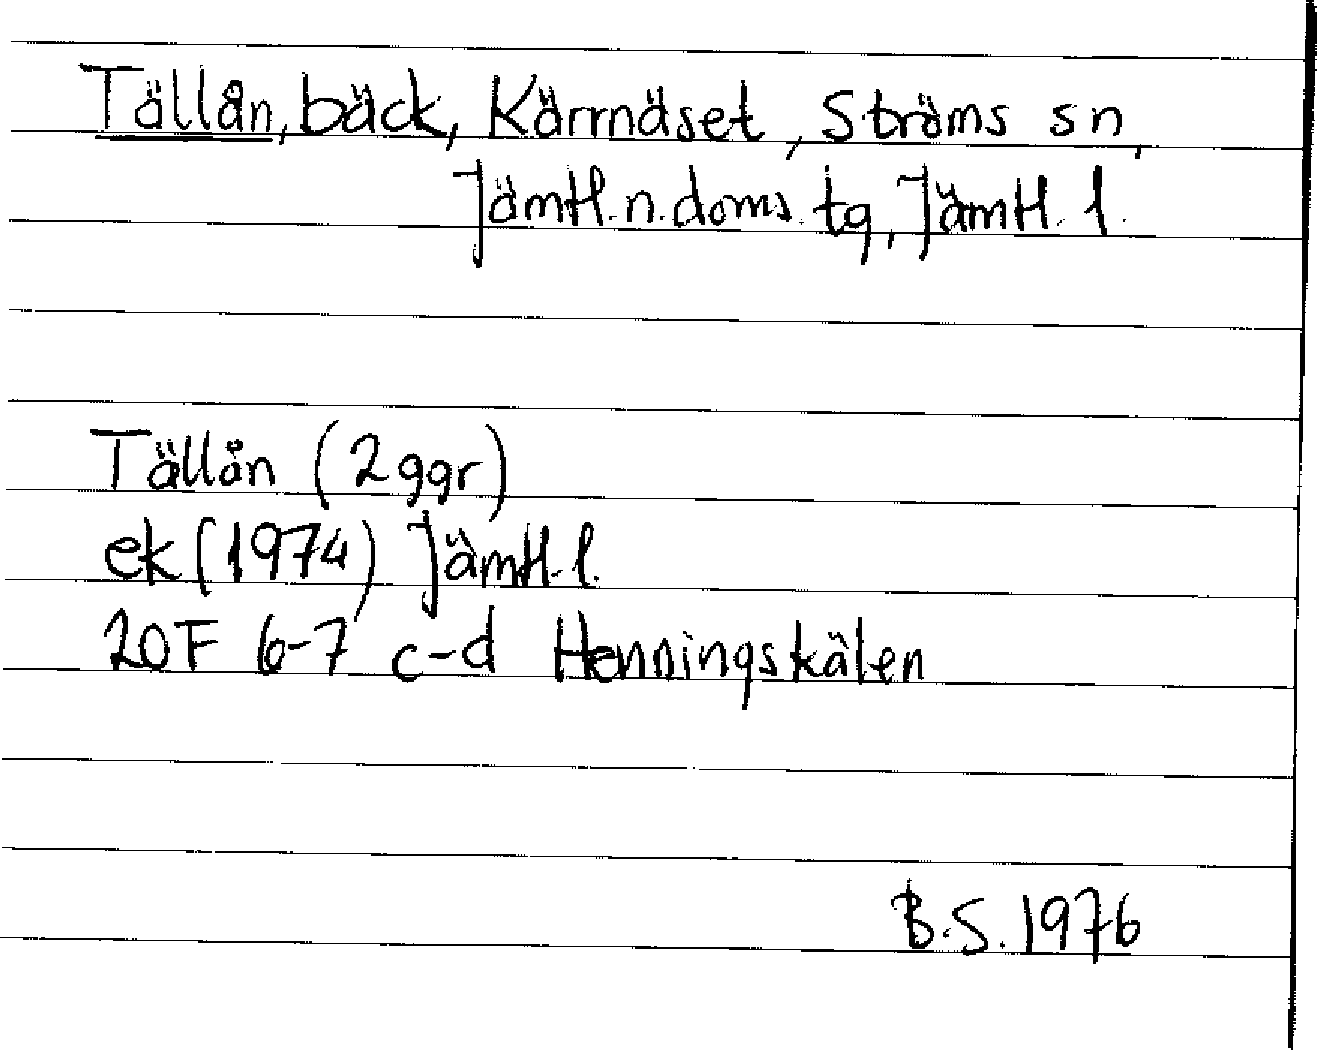 Tällån, bäck, Kärrnäset, Ströms sn,
Jämtl. n. doms. tg, Jämtl. l.
Tällån (2 ggr)
ek (1974) Jämtl. l.
20F 6-7 c-d Henningskälen
B.S. 1976